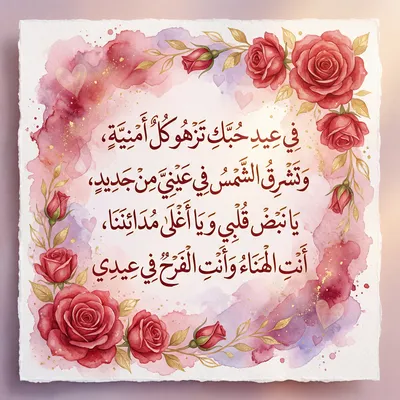 فِي عِيدِ حُبِّكِ تَزْهُو كُلُّ أُمْنِيَّةٍ،
وَتَشْرِقُ الشَّمْسُ فِي عَيْنَيَّ مِنْ جَدِيدٍ،
يَا نَبْضَ قَلْبِي وَيَا أَغْلَى مُدَائِنَنَا،
أَنْتِ الْهَنَاءُ وَأَنْتِ الْفَرَحُ فِي عِيدِي